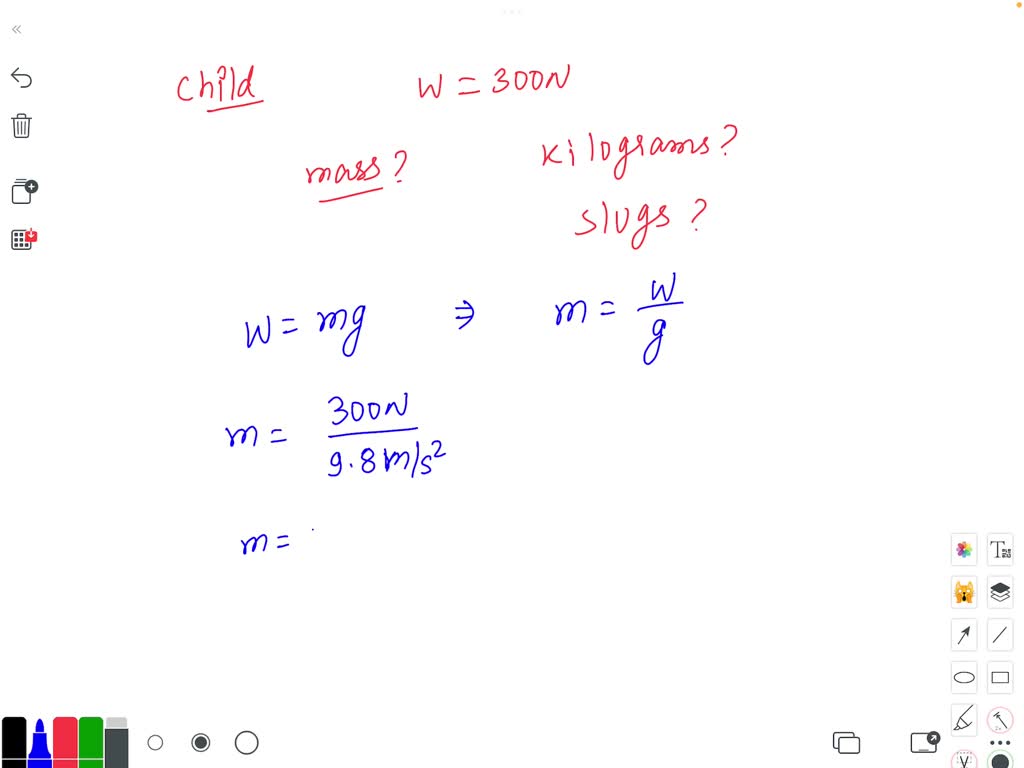 child W = 300N
mass? kilograms?
slugs?
W = mg ⇒ m = W/g
m = 300N / 9.8 m/s²
m =